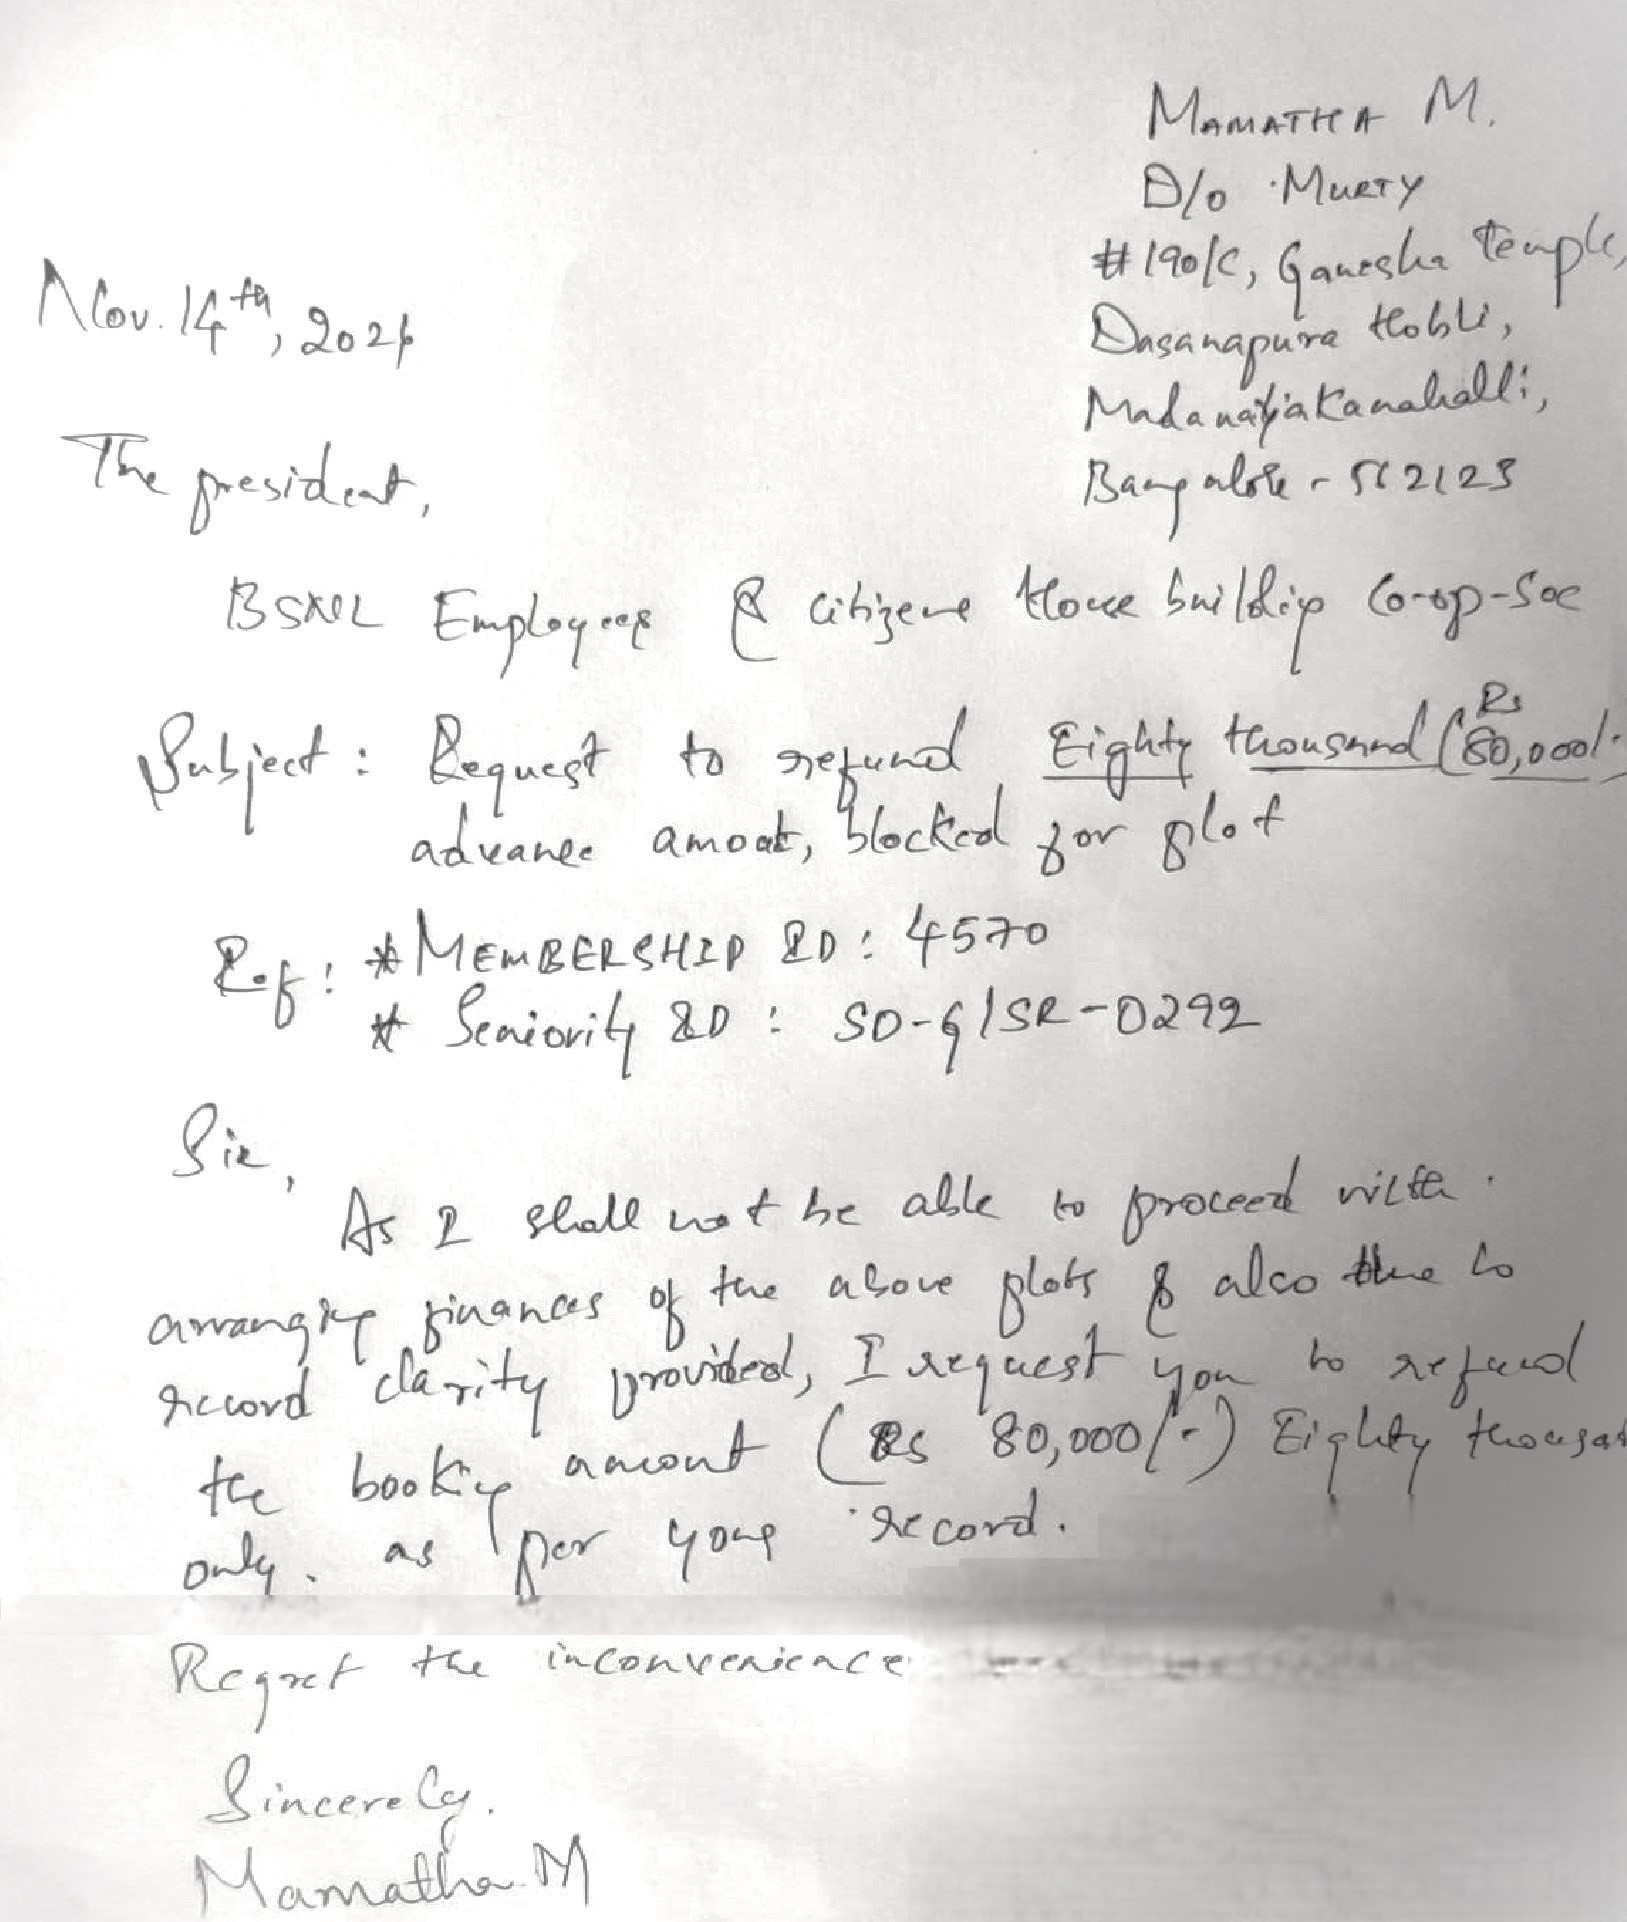 MAMATHA M.
D/o MURTY
#190/C, Ganesha Temple,
Dasanapura Hobli,
Madanayakanahalli,
Bangalore - 562123
Nov. 14th, 2021
The president,
BSNL Employees & citizens House building Co-op-Soc
Subject: Request to refund Eighty thousand (Rs 80,000/-
advance amont, blocked for plot
Ref: * MEMBERSHIP ID: 4570
* Seniority ID: SO-G/SR-0292
Sir,
As I shall not be able to proceed with
arranging finances of the above plots & also to
record clarity provided, I request you to refund
the booking amount (Rs 80,000/-) Eighty
only. as per your record.
Regret the inconvenience
Sincerely.
Mamatha.M